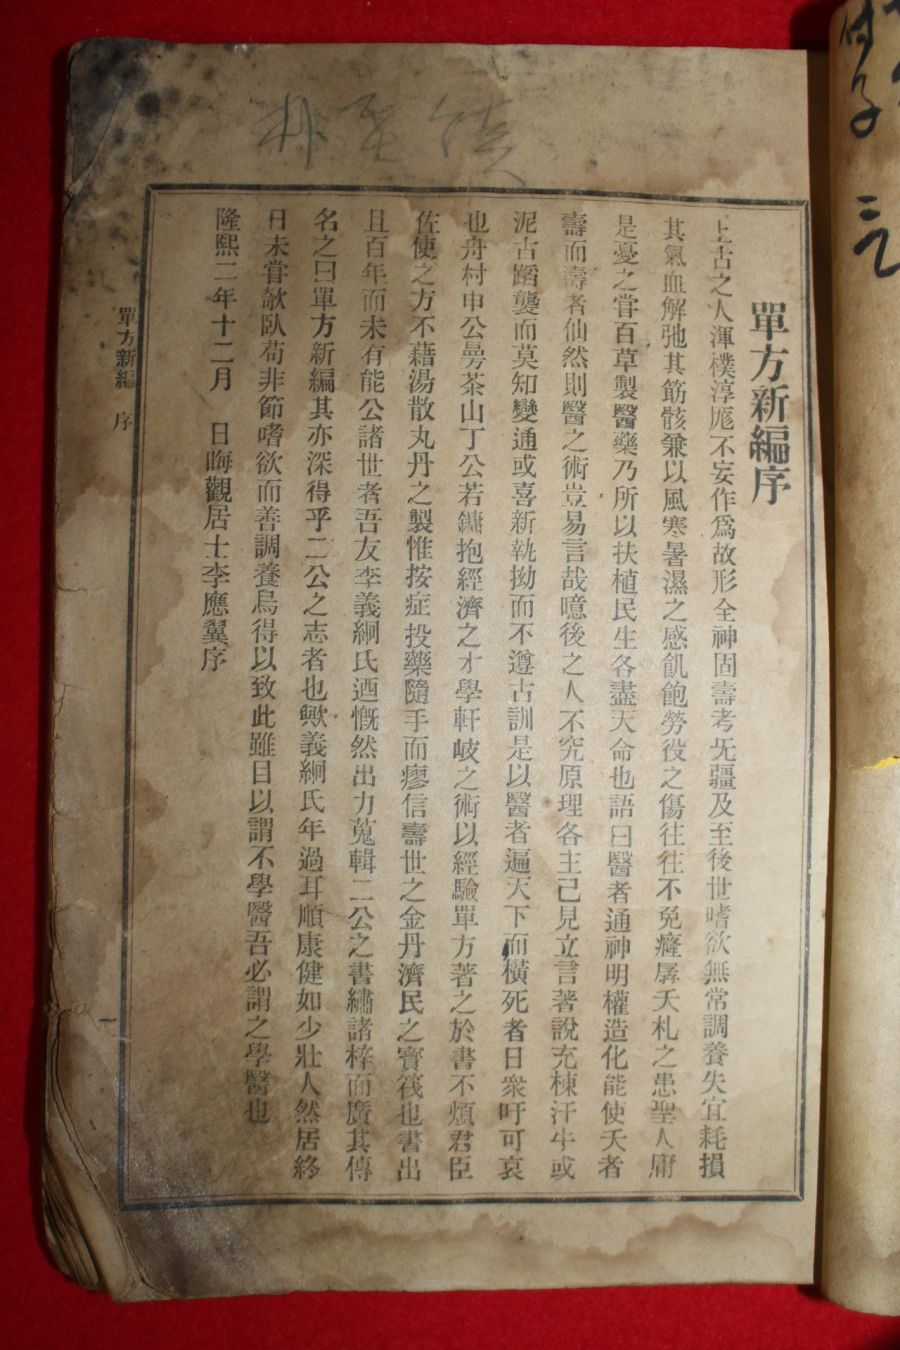 單方新編序
上古之人渾樸淳厖不妄作爲故形全神固壽考旡疆及至後世嗜欲無常調養失宜耗損
其氣血解弛其筋骸兼以風寒暑濕之感飢飽勞役之傷往往不免癃孱夭札之患聖人庸
是憂之甞百草製醫藥乃所以扶植民生各盡天命也語曰醫者通神明權造化能使夭者
壽而壽者仙然則醫之術豈易言哉噫後之人不究原理各主己見立言著說充棟汗牛或
泥古蹈襲而莫知變通或喜新執拗而不遵古訓是以醫者遍天下而橫死者日衆吁可哀
也舟村申公曼茶山丁公若鏞抱經濟之才學軒岐之術以經驗單方著之於書不煩君臣
佐使之方不藉湯散丸丹之製惟按症投藥隨手而瘳信壽世之金丹濟民之寶筏也書出
且百年而未有能公諸世者吾友李義絅氏迺慨然出力蒐輯二公之書繡諸梓而廣其傳
名之曰單方新編其亦深得乎二公之志者也歟義絅氏年過耳順康健如少壯人然居終
日未甞欹臥苟非節嗜欲而善調養烏得以致此雖目以謂不學醫吾必謂之學醫也
隆熙二年十二月　日晦觀居士李應翼序
單方新編　序
朴